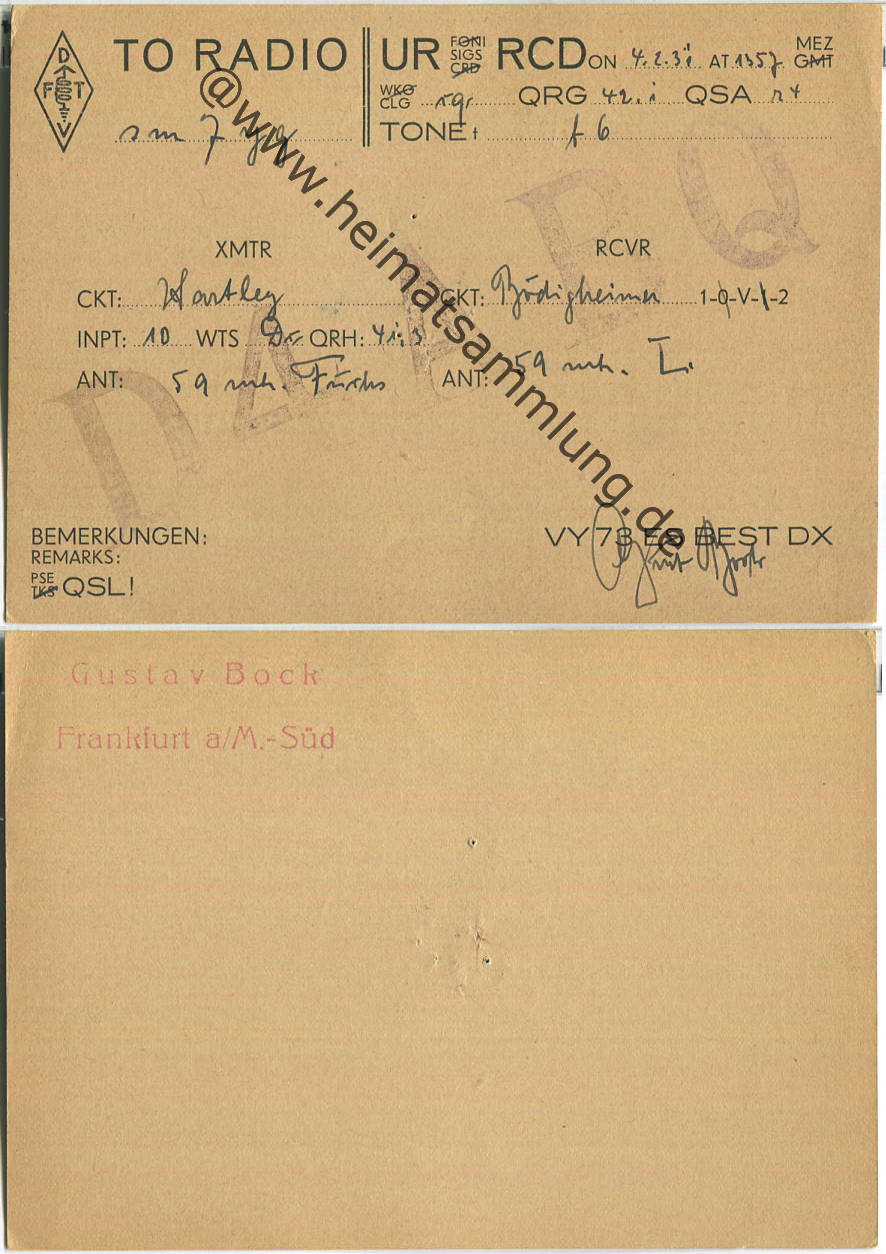 D
F T
V
TO RADIO
UR FONI SIGS CRD RCD ON 4.2.31 AT 1357 MEZ GMT
WKG CLG QRG 42.1 QSA r4
sm7
TONE t t6
@www.heimatsammlung.de
XMTR
CKT: Hartley
INPT: 10 WTS Dr. QRH: 41,3
ANT: 59 mtr. Fuchs
RCVR
CKT: Bödigheimer 1-0-V-1-2
ANT: 59 mtr. L.
BEMERKUNGEN:
REMARKS:
PSE TKS QSL!
VY 73 ES BEST DX
Gustav Bock
Frankfurt a/M.-Süd